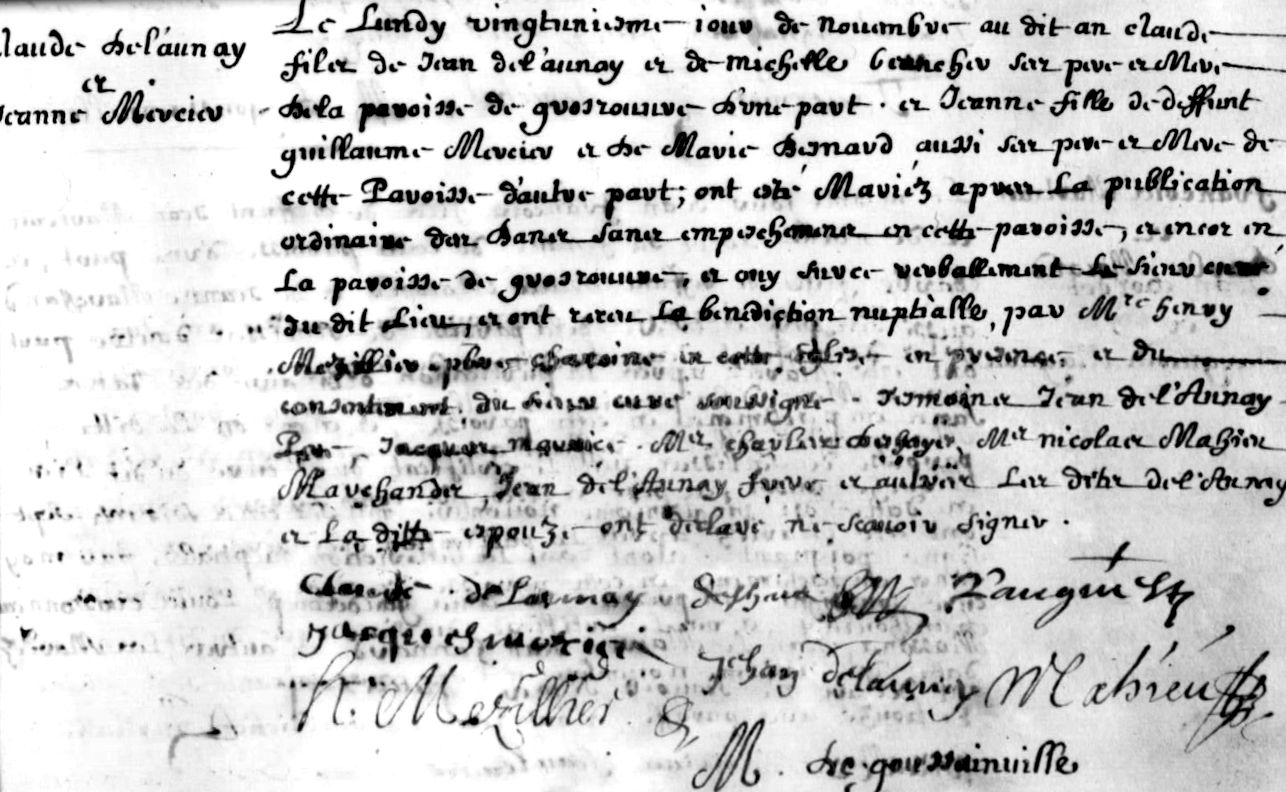 Claude Del'aunay
et
Jeanne Mercier
Le Lundy vingtuniesme jour de Nouembre au dit an claude
filz de Jean del'aunay et de michelle ses pere et Mere
de la paroisse de grosrouure d'vne part. et Jeanne fille de deffunt
guillaume Mercier et de Marie Besnard aussi ses pere et Mere de
cette Paroisse d'autre part; ont esté Mariéz apres La publication
ordinaire des Bancs sans empeschement en cette paroisse, et encor en
La paroisse de grosrouure, et ouy sur ce verballement Le sieur curé
du dit Lieu, et ont receu La benediction nuptialle, par Mre henry
Mezillier pbre chanoine en cette Eglise en presence et du
consentement du sieur curé soussigné. Tesmoins Jean del'Aunay
Pere, Jacques Mr charles Mr nicolas Mahieu
Marchands, Jean del'Aunay frere et aultres Les dits del'Aunay
et La ditte espouze ont déclaré ne scauoir signer.
Claude delaunay
Jehan delaunay Mahieu
h. Mezillier
M. de goussainuille